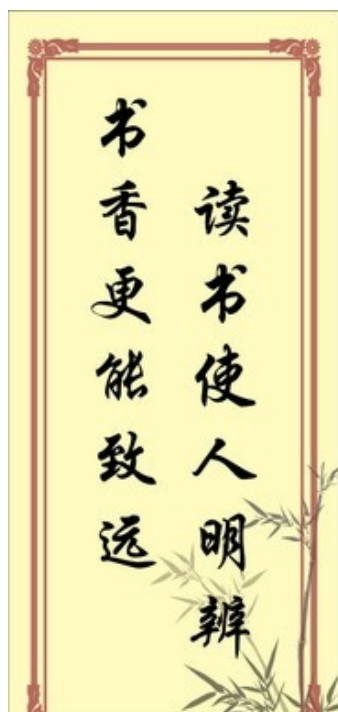 读书使人明辨
书香更能致远